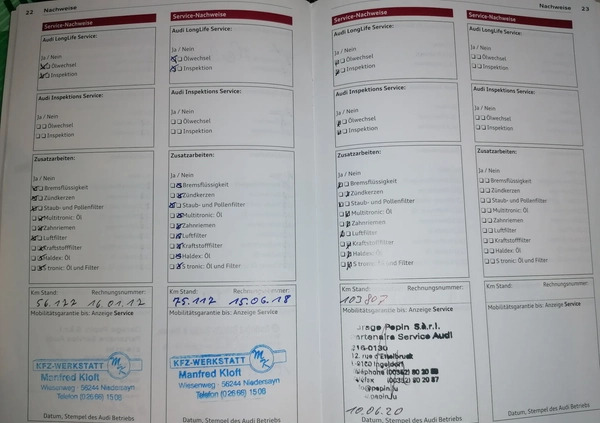 22 Nachweise
Service-Nachweise
Audi LongLife Service:
Ja / Nein
Ölwechsel
Inspektion
Audi Inspektions Service:
Ja / Nein
Ölwechsel
Inspektion
Zusatzarbeiten:
Ja / Nein
Bremsflüssigkeit
Zündkerzen
Staub- und Pollenfilter
Multitronic: Öl
Zahnriemen
Luftfilter
Kraftstofffilter
Haldex: Öl
S tronic: Öl und Filter
Km Stand: Rechnungsnummer:
56.122 16.01.17
Mobilitätsgarantie bis: Anzeige Service
KFZ-WERKSTATT MK
Manfred Kloft
Wiesenweg · 56244 Niedersayn
Telefon (02666) 1508
Datum, Stempel des Audi Betriebs
Service-Nachweise
Audi LongLife Service:
Ja / Nein
Ölwechsel
Inspektion
Audi Inspektions Service:
Ja / Nein
Ölwechsel
Inspektion
Zusatzarbeiten:
Ja / Nein
Bremsflüssigkeit
Zündkerzen
Staub- und Pollenfilter
Multitronic: Öl
Zahnriemen
Luftfilter
Kraftstofffilter
Haldex: Öl
S tronic: Öl und Filter
Km Stand: Rechnungsnummer:
75.112 15.06.18
Mobilitätsgarantie bis: Anzeige Service
KFZ-WERKSTATT MK
Manfred Kloft
Wiesenweg · 56244 Niedersayn
Telefon (02666) 1508
Datum, Stempel des Audi Betriebs
Nachweise 23
Service-Nachweise
Audi LongLife Service:
Ja / Nein
Ölwechsel
Inspektion
Audi Inspektions Service:
Ja / Nein
Ölwechsel
Inspektion
Zusatzarbeiten:
Ja / Nein
Bremsflüssigkeit
Zündkerzen
Staub- und Pollenfilter
Multitronic: Öl
Zahnriemen
Luftfilter
Kraftstofffilter
Haldex: Öl
S tronic: Öl und Filter
Km Stand: Rechnungsnummer:
103807
Mobilitätsgarantie bis: Anzeige Service
Pepin S.à r.l.
Service Audi
12, rue d'Ettelbruck
10.06.20
Datum, Stempel des Audi Betriebs
Service-Nachweise
Audi LongLife Service:
Ja / Nein
Ölwechsel
Inspektion
Audi Inspektions Service:
Ja / Nein
Ölwechsel
Inspektion
Zusatzarbeiten:
Ja / Nein
Bremsflüssigkeit
Zündkerzen
Staub- und Pollenfilter
Multitronic: Öl
Zahnriemen
Luftfilter
Kraftstofffilter
Haldex: Öl
S tronic: Öl und Filter
Km Stand: Rechnungsnummer:
Mobilitätsgarantie bis: Anzeige Service
Datum, Stempel des Audi Betriebs